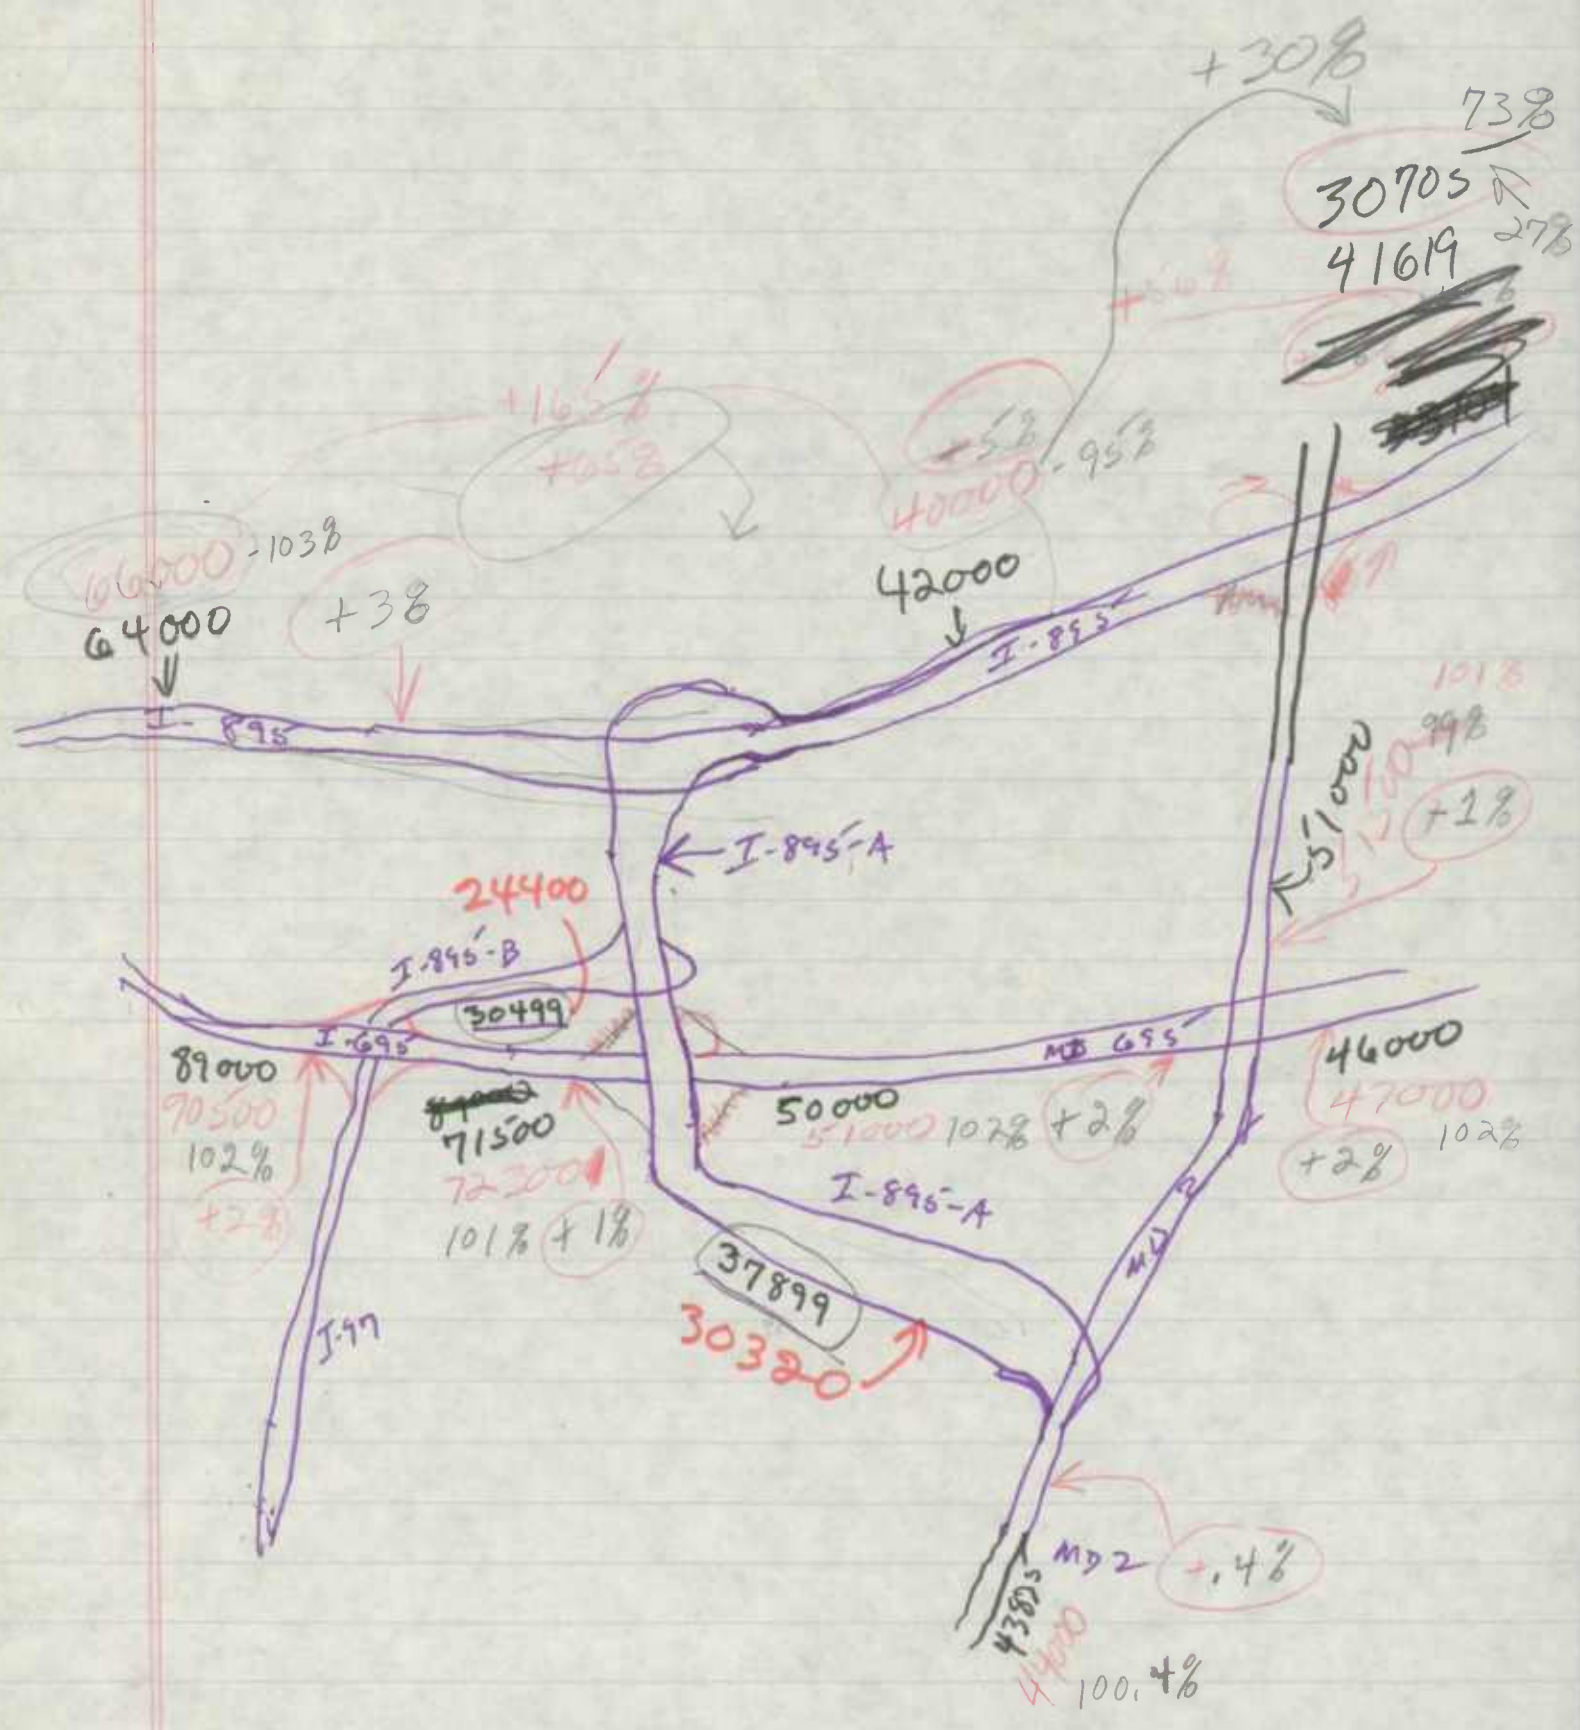 +30%
73%
30705
27%
41619
+56%
+165%
+65%
-5%
40000 - 95%
66000 - 103%
64000
+3%
42000
I-895
I-895
101%
99%
51000
+1%
I-895-A
24400
I-895-B
30499
I-695
MD 695
89000
90500
102%
+2%
71500
72300
101% +1%
50000
51000 102% +2%
46000
47000
102%
+2%
I-895-A
MD 2
37899
30320
I-97
MD 2
-.4%
43825
44000
100.4%